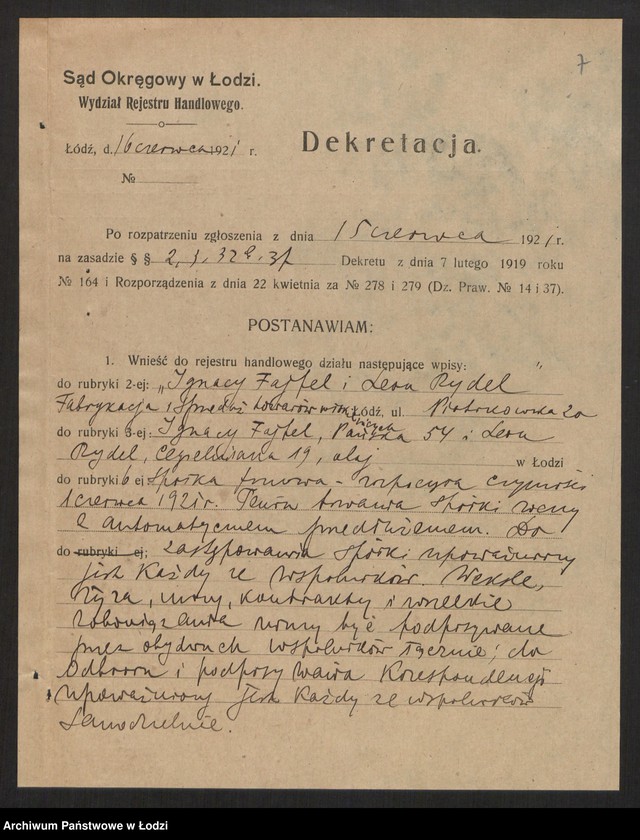 7
Sąd Okręgowy w Łodzi.
Wydział Rejestru Handlowego.
Łódź, d. 16 czerwca 1921 r.
Dekretacja.
№
Po rozpatrzeniu zgłoszenia z dnia 15 czerwca 1921 r.
na zasadzie § § 2, Dekretu z dnia 7 lutego 1919 roku
№ 164 i Rozporządzenia z dnia 22 kwietnia za № 278 i 279 (Dz. Praw. № 14 i 37).
POSTANAWIAM:
1. Wnieść do rejestru handlowego działu następujące wpisy: "
do rubryki 2-ej: „Ignacy Fajfel i Leon Rydel
Fabrykacja i sprzedaż towarów włókienniczych Łódź, ul. Piotrkowska 20
do rubryki 3-ej: Ignacy Fajfel, Pańska 54 i Leon
Rydel, Cegielniana 19, w Łodzi
do rubryki 6 ej Spółka firmowa - rozpoczyna czynności
1 czerwca 1921 r. trwania Spółki
z automatycznem przedłużeniem. Do
do rubryki ej; zastępowania Spółki upoważniony
jest każdy ze wspólników. Weksle,
żyra, umowy, kontrakty i wszelkie
zobowiązania winny być podpisywane
przez obydwuch wspólników łącznie; do
odbioru i podpisywania korespondencji
upoważniony jest każdy ze wspólników
samodzielnie.
Archiwum Państwowe w Łodzi